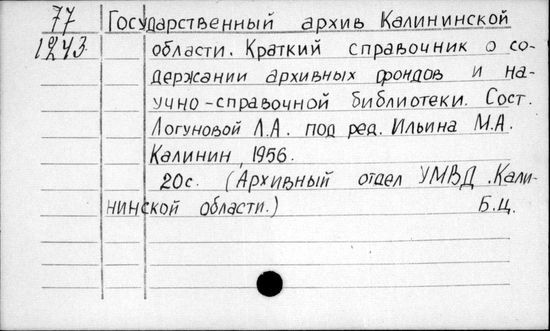 77 Государственный архив Калининской
1243 области. Краткий справочник о со-
держании архивных фондов и на-
учно-справочной библиотеки. Сост.
Логуновой Л.А. под ред. Ильина М.А.
Калинин, 1956.
20с. (Архивный отдел УМВД Кали-
нинской области.) Б.ц.